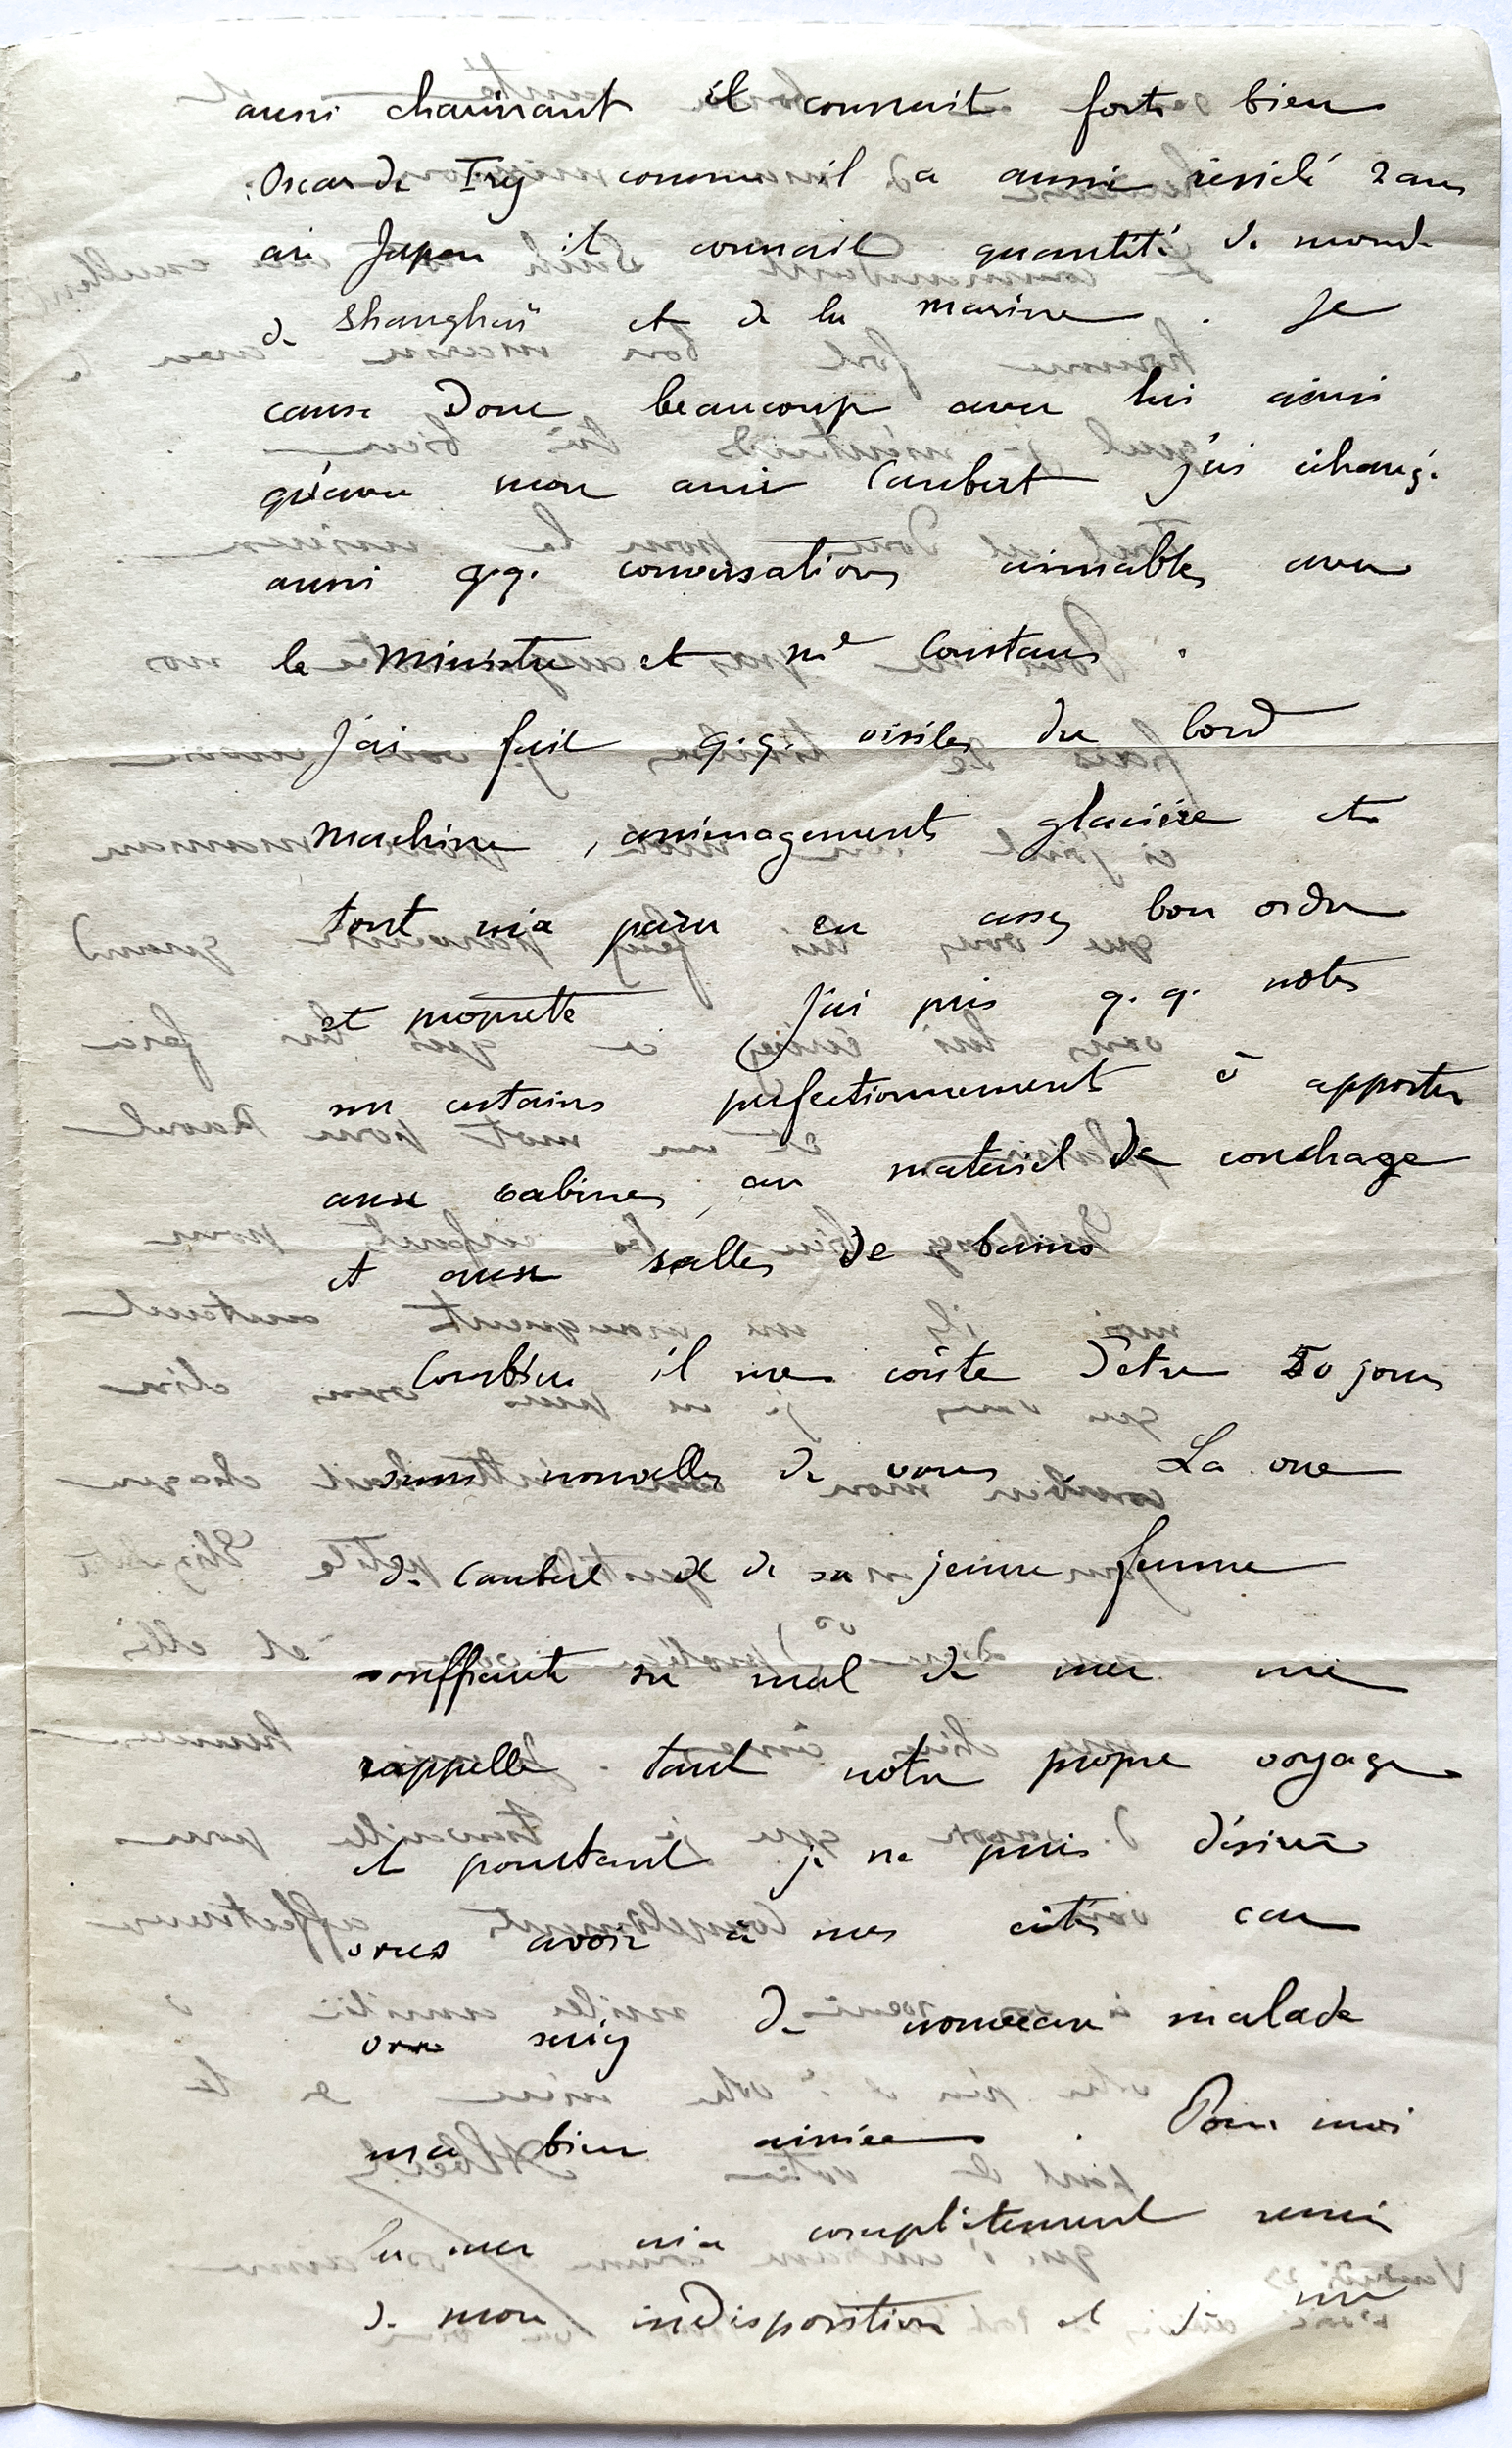 aussi charmant il connait fort bien
Oscar de Try comme il a aussi résidé 2 ans
au Japon it connait quantité de monde
de Shanghaï et de la marine. Je
cause donc beaucoup avec lui ainsi
qu'avec mon ami Caubert j'ai échangé
aussi q.q. conversations aimables avec
le Ministre et Me Constans.
J'ai fait q.q. visites du bord
machine, aménagements glacière etc
tout m'a paru en assez bon ordre
et propreté J'ai pris q. q. notes
sur certains perfectionnement à apporter
aux cabines, au materiel de couchage
et aux salles de bains
Combien il me coûte d'etre 50 jours
sans nouvelles de vous. La vue
de Caubert et de sa jeune femme
souffrante du mal de mer me
rappelle tant notre propre voyage
et pourtant je ne puis désirer
vous avoir à mes cotés car
vous seriez de nouveau malade
ma bien aimée. Pour moi
la mer m'a complètement remis
de mon indisposition et je me